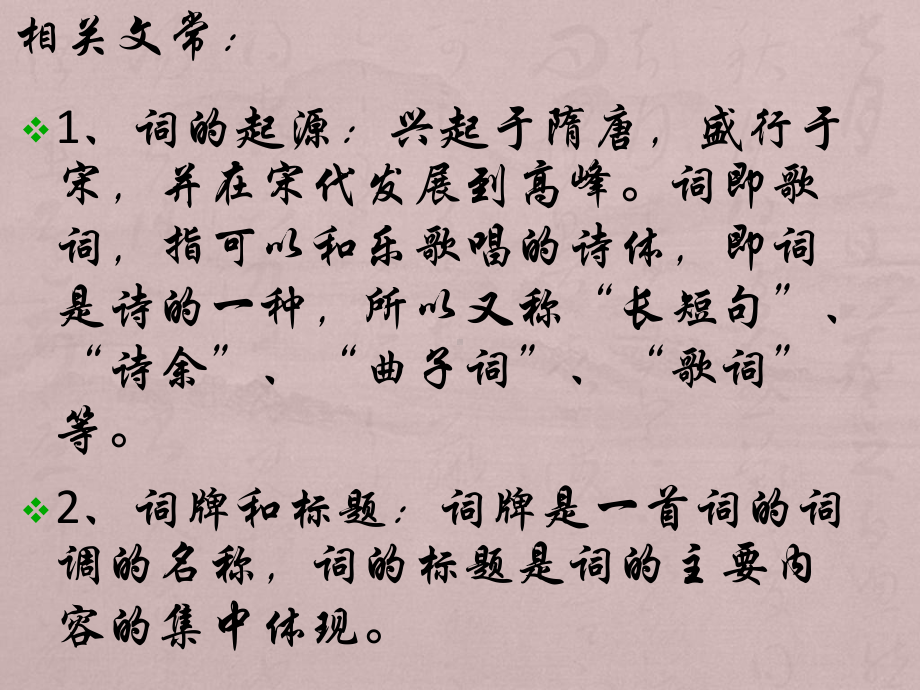 相关文常：
1、词的起源：兴起于隋唐，盛行于
宋，并在宋代发展到高峰。词即歌
词，指可以和乐歌唱的诗体，即词
是诗的一种，所以又称“长短句”、
“诗余”、“曲子词”、“歌词”
等。
2、词牌和标题：词牌是一首词的词
调的名称，词的标题是词的主要内
容的集中体现。